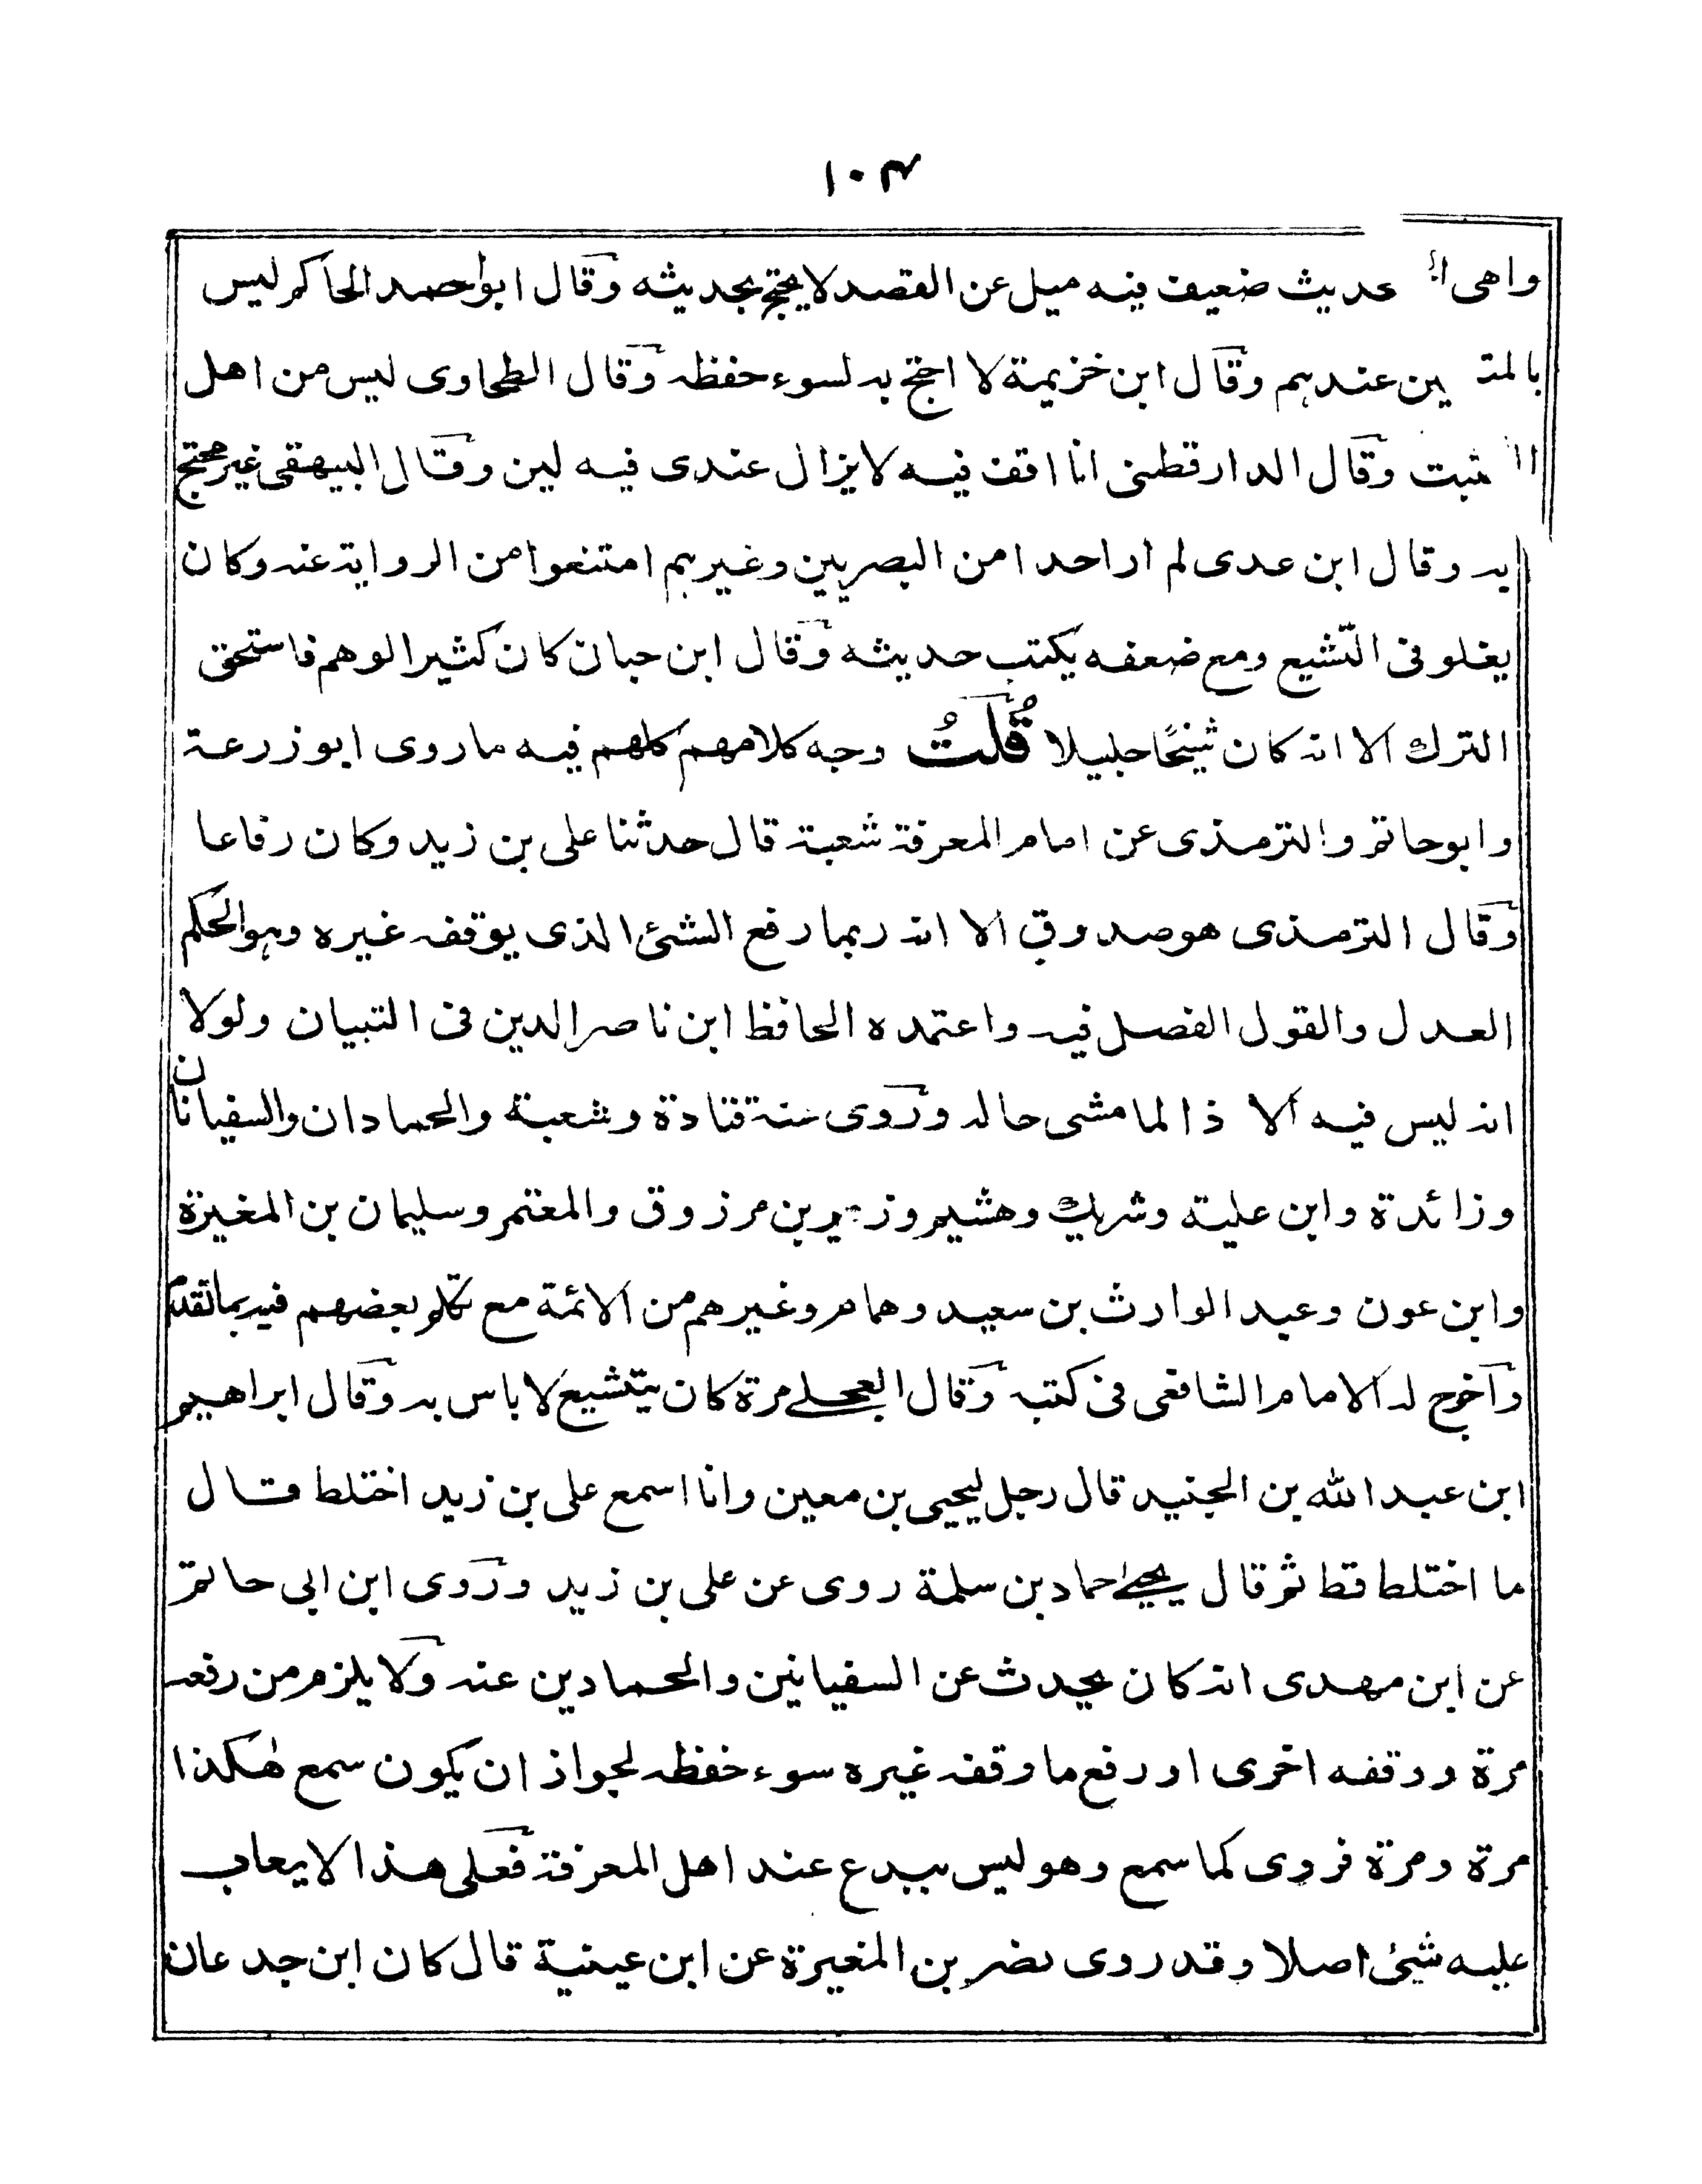 ۱۰۳
واهى الحديث ضعيف فيه ميل عن القصد لا يحتج بحديثه وقال ابو احمد الحاكم ليس
بالمتين عندهم وقال ابن خزيمة لا احتج به لسوء حفظه وقال الطحاوى ليس من اهل
الثبت وقال الدارقطنى انا اقف فيه لا يزال عندى فيه لين وقال البيهقى غير محتج
به وقال ابن عدى لم ار احدا من البصريين وغيرهم امتنعوا من الرواية عنه وكان
يغلو فى التشيع ومع ضعفه يكتب حديثه وقال ابن حبان كان كثير الوهم فاستحق
الترك الا انه كان شيخًا جليلا قُلتُ وجه كلامهم كلهم فيه ما روى ابو زرعة
وابو حاتم والترمذى عن امام المعرفة شعبة قال حدثنا على بن زيد وكان رفاعا
وقال الترمذى هو صدوق الا انه ربما رفع الشئ الذى يوقفه غيره وهو الحكم
العدل والقول الفصل فيه واعتمده الحافظ ابن ناصر الدين فى التبيان ولولا
انه ليس فيه الا ذا لما مشى حاله وروى عنه قتادة وشعبة والحمادان والسفيانان
وزائدة وابن علية وشريك وهشيم وزهير بن مرزوق والمعتمر وسليمان بن المغيرة
وابن عون وعبد الوارث بن سعيد وهمام وغيرهم من الائمة مع تكلم بعضهم فيه بما تقدم
واخرج له الامام الشافعى فى كتبه وقال العجلى مرة كان يتشيع لا باس به وقال ابراهيم
ابن عبد الله بن الجنيد قال رجل ليحيى بن معين وانا اسمع على بن زيد اختلط قال
ما اختلط قط ثم قال يحيى حماد بن سلمة روى عن على بن زيد وروى ابن ابى حاتم
عن ابن مهدى انه كان يحدث عن السفيانين والحمادين عنه ولا يلزم من رفعه
مرة ووقفه اخرى او رفع ما وقفه غيره سوء حفظه لجواز ان يكون سمع هٰكذا
مرة ومرة فروى كما سمع وهو ليس ببدع عند اهل المعرفة فعلى هذا لا يعاب
عليه شيئ اصلا وقد روى نضر بن المغيرة عن ابن عيينة قال كان ابن جدعان